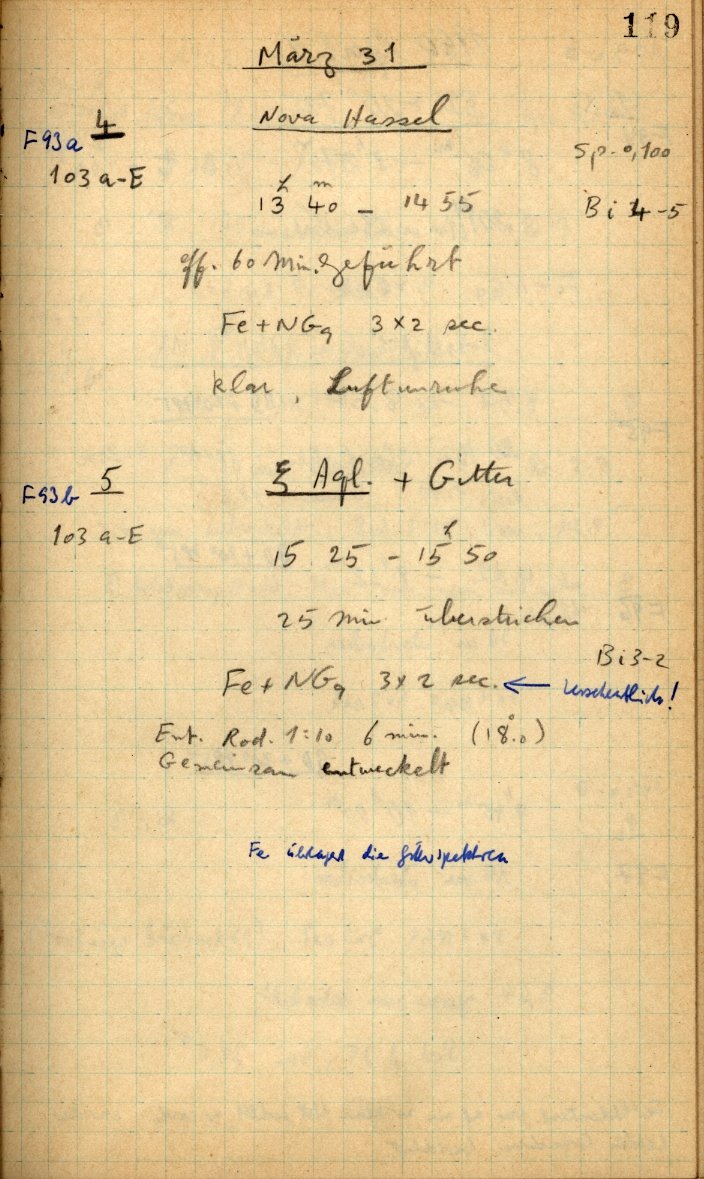 119
März 31
Nova Hassel
F93a 4
Sp. 0,100
103 a-E
13h 40m - 14 55
Bi 4-5
eff. 60 Min. geführt
Fe + NG9 3 x 2 sec.
klar, Luftunruhe
F93b 5
ξ Aql. + Gitter
103 a-E
15 25 - 15h 50
25 min überstrichen
Bi 3-2
Fe + NG9 3 x 2 sec. ← versehentlich!
Ent. Rod. 1:10 6 min. (18°.0)
Gemeinsam entwickelt
Fe überlagert die Gitterspektren